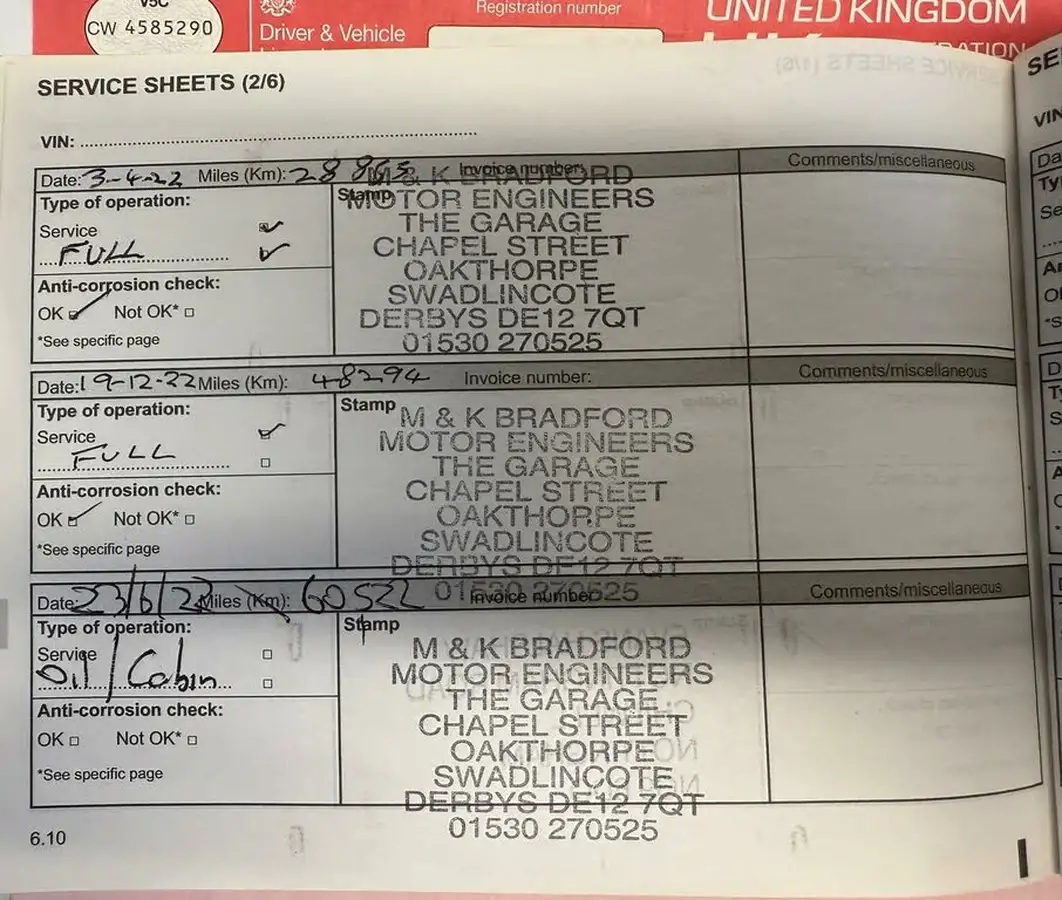 V5C
CW 4585290
Driver & Vehicle
Registration number
UNITED KINGDOM
SERVICE SHEETS (2/6)
VIN:
Date: 3-4-22 Miles (Km): 28 865 Invoice number: Comments/miscellaneous
Type of operation:
Service
FULL
Anti-corrosion check:
OK Not OK*
*See specific page
Stamp
M & K BRADFORD
MOTOR ENGINEERS
THE GARAGE
CHAPEL STREET
OAKTHORPE
SWADLINCOTE
DERBYS DE12 7QT
01530 270525
Date: 19-12-22 Miles (Km): 48294 Invoice number: Comments/miscellaneous
Type of operation:
Service
FULL
Anti-corrosion check:
OK Not OK*
*See specific page
Stamp
M & K BRADFORD
MOTOR ENGINEERS
THE GARAGE
CHAPEL STREET
OAKTHORPE
SWADLINCOTE
DERBYS DE12 7QT
01530 270525
Date: 23/6/23 Miles (Km): 60522 Invoice number: Comments/miscellaneous
Type of operation:
Service
Oil / Cabin
Anti-corrosion check:
OK Not OK*
*See specific page
Stamp
M & K BRADFORD
MOTOR ENGINEERS
THE GARAGE
CHAPEL STREET
OAKTHORPE
SWADLINCOTE
DERBYS DE12 7QT
01530 270525
6.10